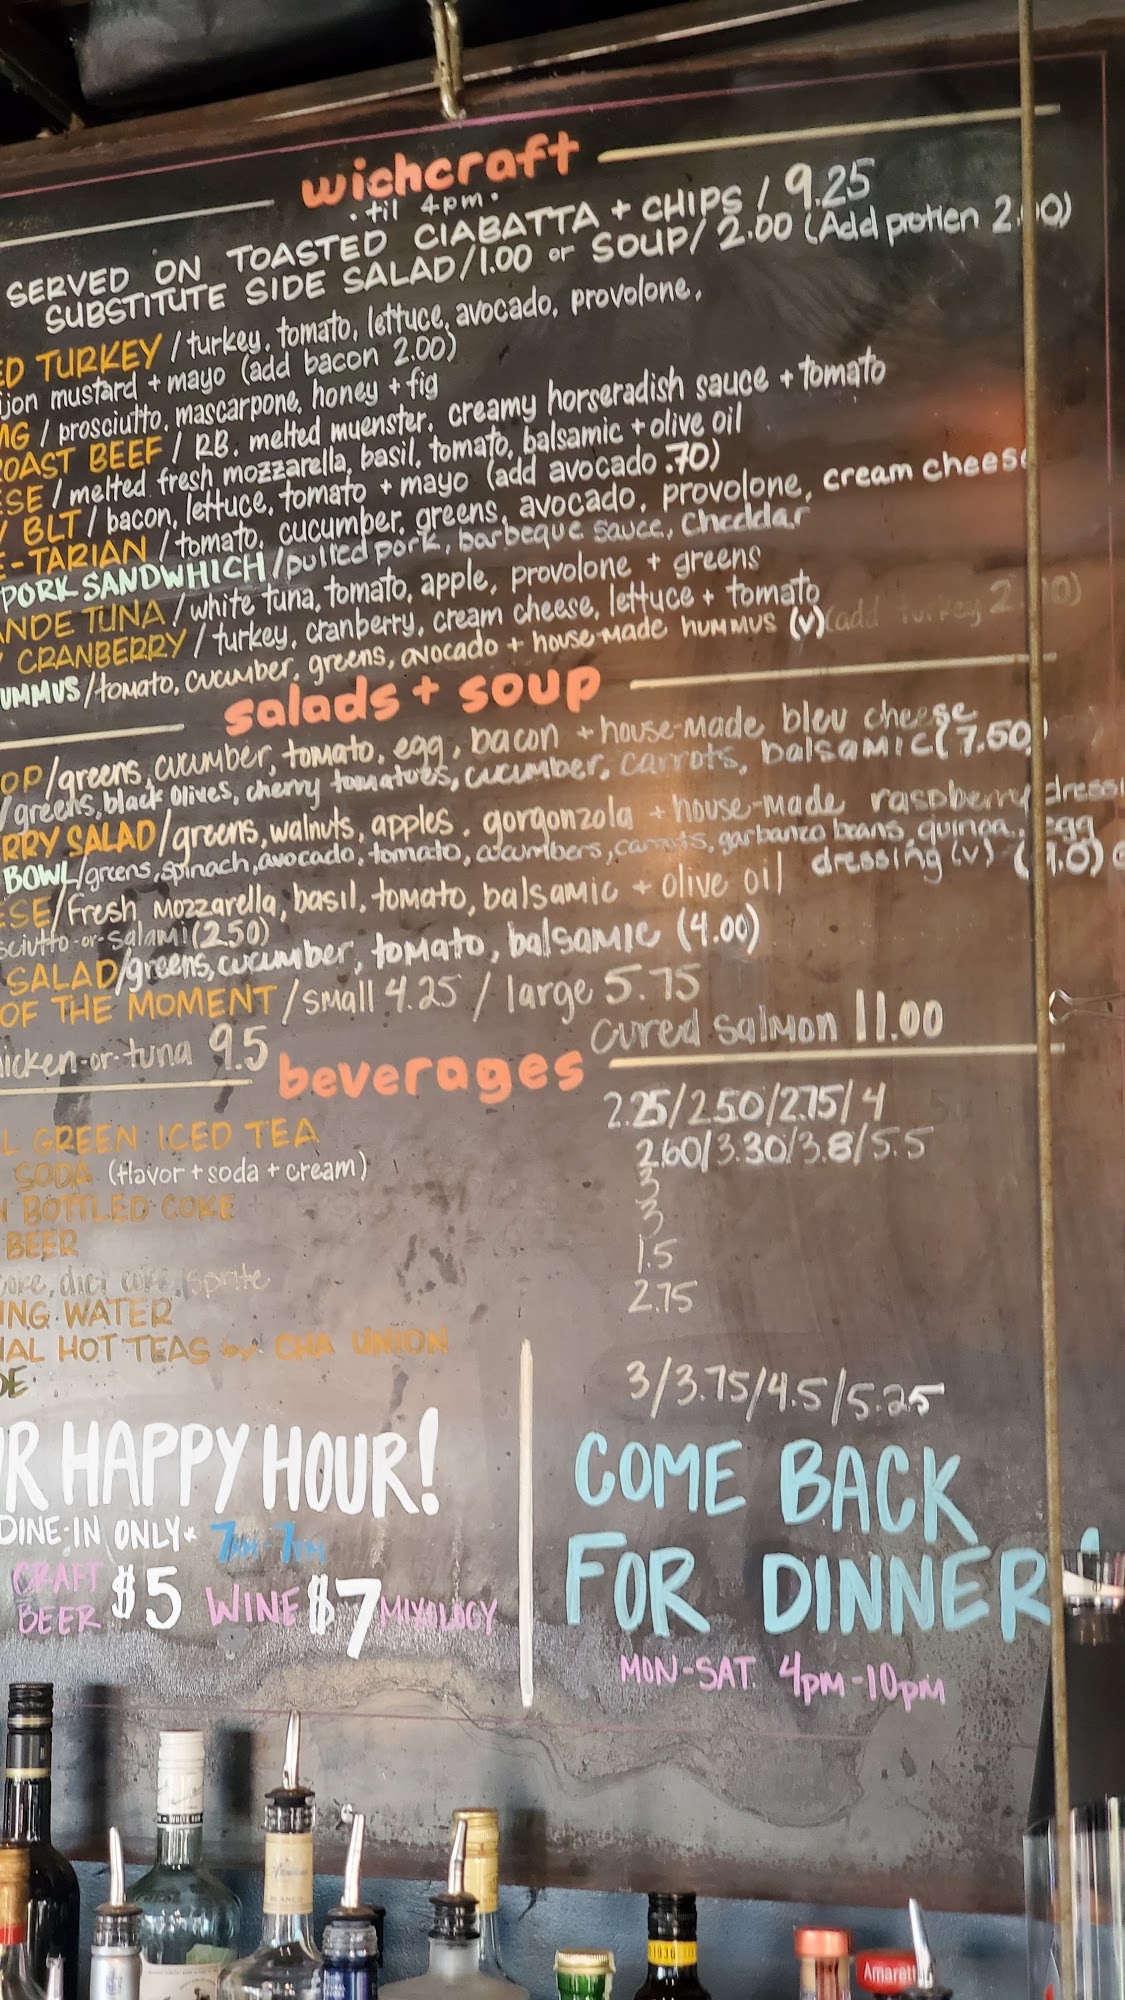 wichcraft
. til 4pm.
SERVED ON TOASTED CIABATTA + CHIPS / 9.25
SUBSTITUTE SIDE SALAD/1.00 or SOUP/ 2.00 (Add protien 2.00)
ED TURKEY / turkey, tomato, lettuce, avocado, provolone,
jon mustard + mayo (add bacon 2.00)
MG / prosciutto, mascarpone, honey + fig
OAST BEEF / R.B. melted muenster, creamy horseradish sauce + tomato
ESE / melted fresh mozzarella, basil, tomato, balsamic + olive oil
Y BLT / bacon, lettuce, tomato + mayo (add avocado .70)
E-TARIAN / tomato, cucumber, greens, avocado, provolone, cream cheese
PORK SANDWHICH / pulled pork, barbeque sauce, cheddar
ANDE TUNA / white tuna, tomato, apple, provolone + greens
Y CRANBERRY / turkey, cranberry, cream cheese, lettuce + tomato
UMMUS / tomato, cucumber, greens, avocado + house-made hummus (v) (add turkey 2.00)
salads + soup
OP / greens, cucumber, tomato, egg, bacon + house-made bleu cheese
/ greens, black olives, cherry tomatoes, cucumber, carrots, balsamic (7.50)
RRY SALAD / greens, walnuts, apples, gorgonzola + house-made raspberry dressi
BOWL / greens, spinach, avocado, tomato, cucumbers, carrots, garbanzo beans, quinoa, egg
dressing (v)
ESE / fresh mozzarella, basil, tomato, balsamic + olive oil
sciutto-or-salami (2.50)
SALAD / greens, cucumber, tomato, balsamic (4.00)
OF THE MOMENT / small 4.25 / large 5.75
hicken-or-tuna 9.5 cured salmon 11.00
beverages
2.25/2.50/2.75/4
L GREEN ICED TEA
2.60/3.30/3.8/5.5
SODA (flavor + soda + cream)
3
N BOTTLED COKE
3
BEER
1.5
coke, diet coke, sprite
2.75
ING WATER
NAL HOT TEAS by CHA UNION
DE
3/3.75/4.5/5.25
R HAPPY HOUR!
DINE-IN ONLY* 7AM-7PM
CRAFT BEER $5 WINE $7 MIXOLOGY
COME BACK
FOR DINNER!
MON-SAT. 4pm-10pm
BLANCO
1930
Amarett